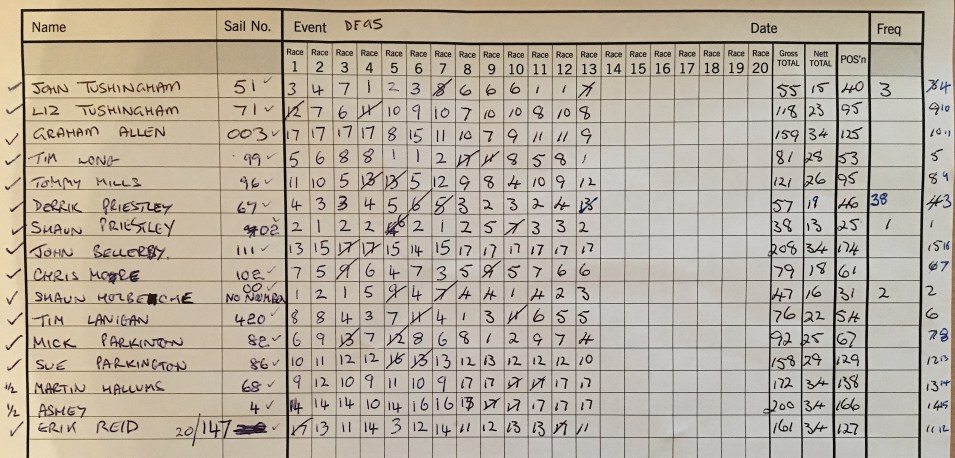 Name Sail No. Event DF95 Date Freq
Race 1 Race 2 Race 3 Race 4 Race 5 Race 6 Race 7 Race 8 Race 9 Race 10 Race 11 Race 12 Race 13 Race 14 Race 15 Race 16 Race 17 Race 18 Race 19 Race 20 Gross TOTAL Nett TOTAL POS'n
JOHN TUSHINGHAM 51 3 4 7 1 2 3 8 6 6 6 1 1 7 55 15 40 3 4
LIZ TUSHINGHAM 71 12 7 6 11 10 9 10 7 10 10 8 10 8 118 23 95 9 10
GRAHAM ALLEN 003 17 17 17 17 8 15 11 10 7 9 11 11 9 159 34 125 10 11
TIM LONG 99 5 6 8 8 1 1 2 17 11 8 5 8 1 81 28 53 5
TOMMY MILLS 96 11 10 5 13 13 5 12 9 8 4 10 9 12 121 26 95 8 9
DERRIK PRIESTLEY 67 4 3 3 4 5 6 5 3 2 3 2 4 13 57 19 46 38 3
SHAUN PRIESTLEY 02 2 1 2 2 6 2 1 2 5 7 3 3 2 38 13 25 1 1
JOHN BELLERBY. 111 13 15 17 17 15 14 15 17 17 17 17 17 17 208 34 174 15 16
CHRIS MOORE 102 7 5 9 6 4 7 3 5 9 5 7 6 6 79 18 61 6 7
SHAUN HOLBECHE 00 NO NUMBER 1 2 1 5 9 4 7 4 4 1 4 2 3 47 16 31 2 2
TIM LANIGAN 420 8 8 4 3 7 11 4 1 3 11 6 5 5 76 22 54 6
MICK PARKINTON 82 6 9 13 7 12 8 6 8 1 2 9 7 4 92 25 67 7 8
SUE PARKINGTON 86 10 11 12 12 16 13 13 12 13 12 12 12 10 158 29 129 12 13
1/2 MARTIN HALLUMS 68 9 12 10 9 11 10 9 17 17 17 17 17 17 172 34 138 13 14
1/2 ASHEY 4 14 14 14 10 14 16 16 13 17 17 17 17 17 200 34 166 14 15
ERIK REID 20/147 17 13 11 14 3 12 14 11 12 13 13 17 11 161 34 127 11 12